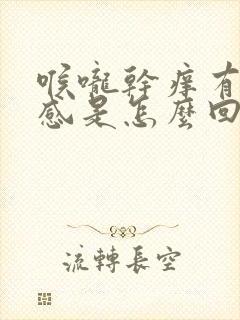 喉嚨幹癢有
感是怎麼回
流轉長空